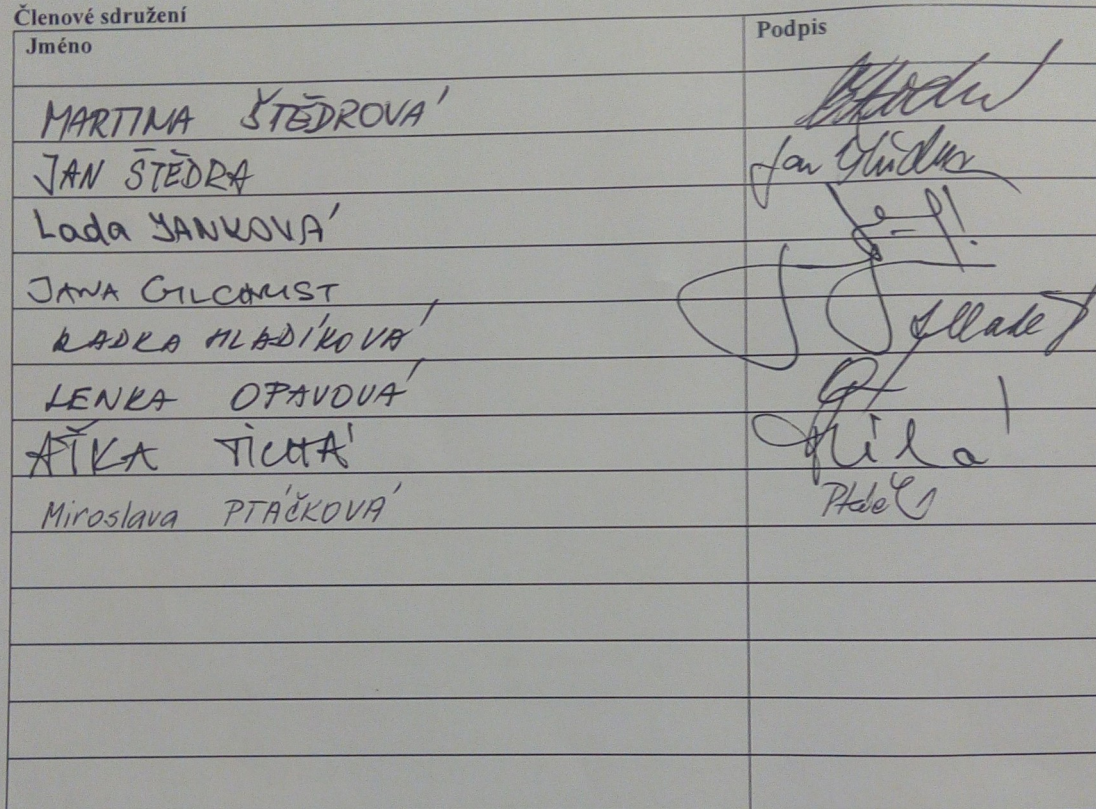 Členové sdružení
Jméno Podpis
MARTINA ŠTĚDROVÁ
JAN ŠTĚDRA Jan
Lada JANKOVÁ
JANA GILCHRIST
RADKA HLADÍKOVÁ
LENKA OPAVOVÁ
AŤKA TICHÁ
Miroslava PTÁČKOVÁ